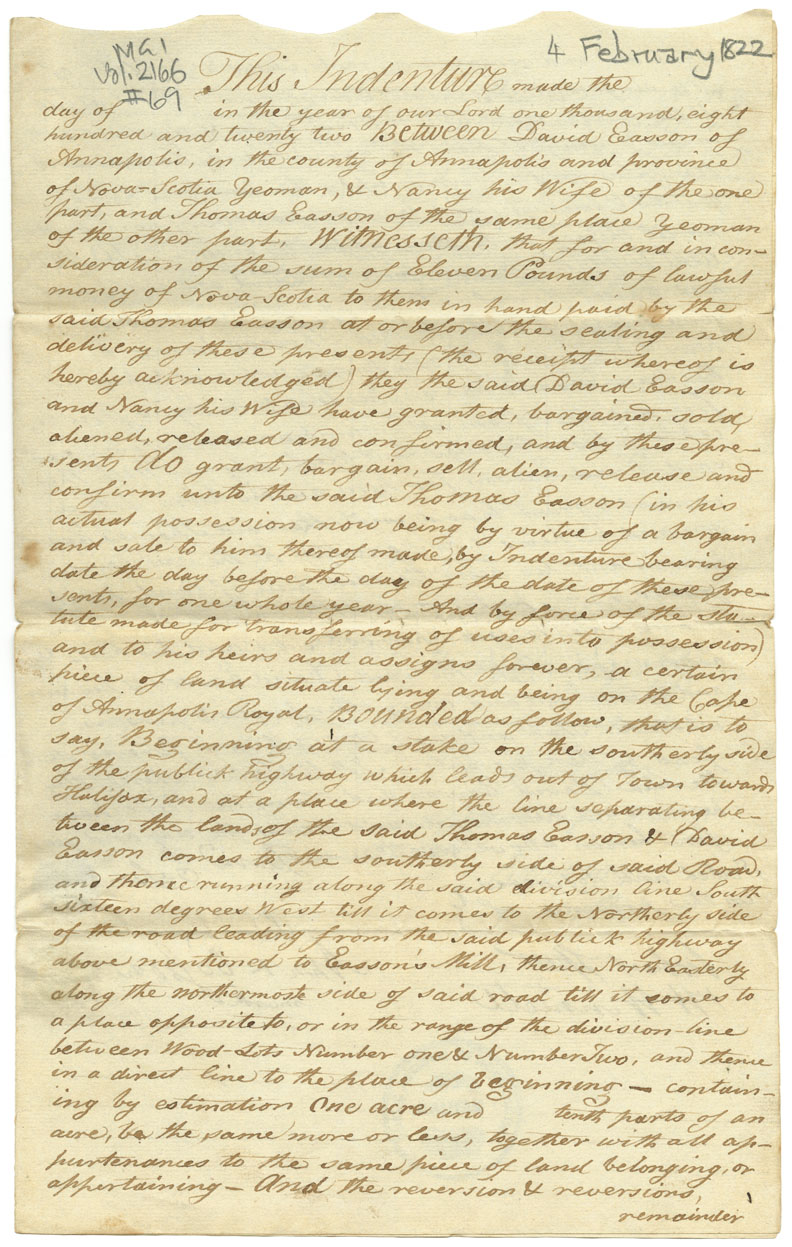 MG1
Vol. 2166
#69
4 February 1822
This Indenture made the
day of in the year of our Lord one thousand, eight
hundred and twenty two Between David Easson of
Annapolis, in the county of Annapolis and province
of Nova-Scotia Yeoman, & Nancy his Wife of the one
part, and Thomas Easson of the same place Yeoman
of the other part, Witnesseth, that for and in con-
sideration of the sum of Eleven Pounds of lawful
money of Nova-Scotia to them in hand paid by the
said Thomas Easson at or before the sealing and
delivery of these presents (the receipt whereof is
hereby acknowledged) they the said David Easson
and Nancy his Wife have granted, bargained, sold,
aliened, released and confirmed, and by these pre-
sents Do grant, bargain, sell, alien, release and
confirm unto the said Thomas Easson (in his
actual possession now being by virtue of a bargain
and sale to him thereof made, by Indenture bearing
date the day before the day of the date of these pre-
sents, for one whole year – And by force of the sta-
tute made for transferring of uses into possession)
and to his heirs and assigns forever, a certain
piece of land situate lying and being on the Cape
of Annapolis Royal, Bounded as follows, that is to
say, Beginning at a stake on the southerly side
of the publick highway which leads out of Town towards
Halifax, and at a place where the line separating be-
tween the lands of the said Thomas Easson & David
Easson comes to the southerly side of said Road,
and thence running along the said division line South
sixteen degrees West till it comes to the Northerly side
of the road leading from the said publick highway
above mentioned to Easson's Mill, thence North Easterly
along the northermost side of said road till it comes to
a place opposite to, or in the range of the division-line
between Wood-Lots Number one & Number Two, and thence
in a direct line to the place of beginning – contain-
ing by estimation One acre and tenth parts of an
acre, be the same more or less, together with all ap-
purtenances to the same piece of land belonging, or
appertaining – And the reversion & reversions,
remainder